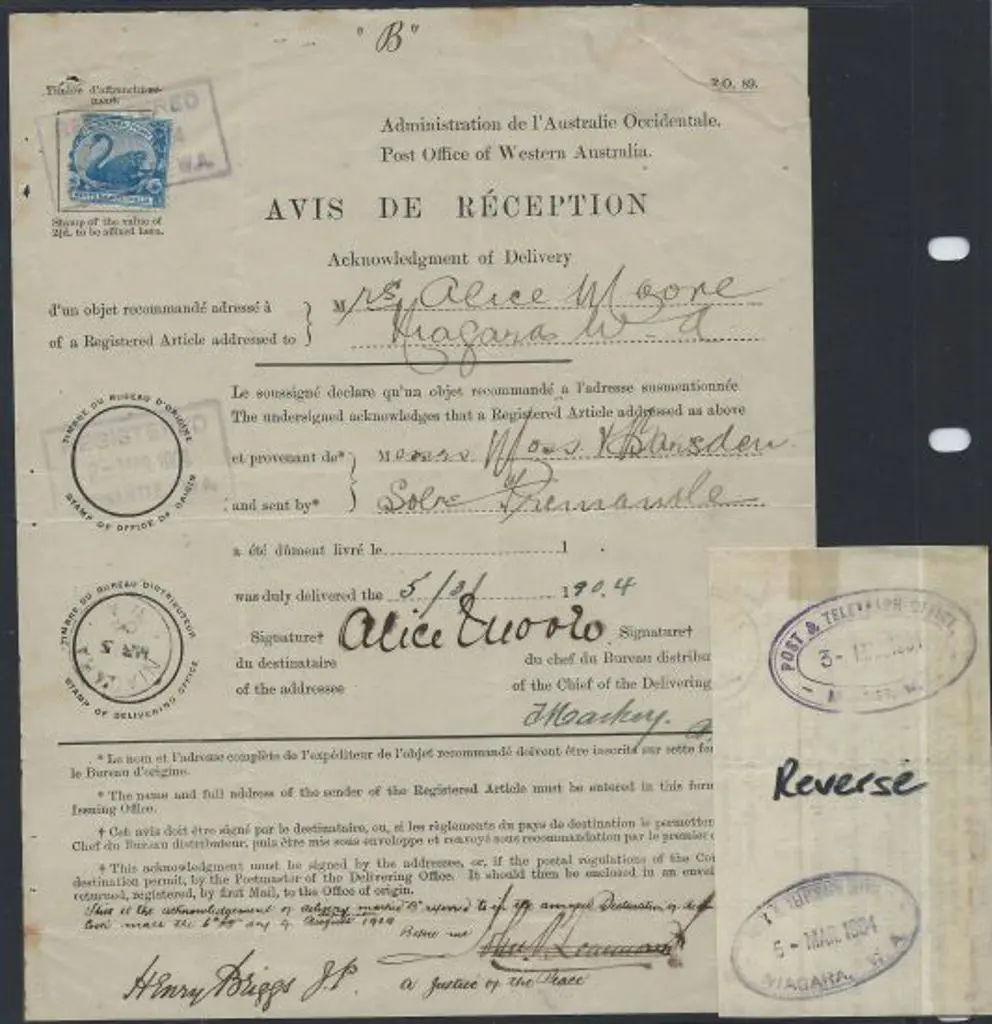 " B "
Timbre d'affranchisse-
ment.
P.O. 89.
REGISTERED
W.A.
Administration de l'Australie Occidentale.
Post Office of Western Australia.
Stamp of the value of
2½d. to be affixed here.
AVIS DE RÉCEPTION
Acknowledgment of Delivery
d'un objet recommandé adressé à
of a Registered Article addressed to
Mrs Alice Moore
Niagara W.A
Le soussigné declare qu'un objet recommandé a l'adresse susmentionnée
The undersigned acknowledges that a Registered Article addressed as above
TIMBRE DU BUREAU D'ORIGINE
STAMP OF OFFICE OF ORIGIN
REGISTERED
et provenant de* Messrs Moss & Barsden
and sent by* Solrs Fremantle
a été dûment livré le 1 .
was duly delivered the 5/3/ 1904
TIMBRE DU BUREAU DISTRIBUTEUR
MR 5
STAMP OF DELIVERING OFFICE
Signature† Alice Moore Signature†
du destinataire du chef du Bureau distribu
of the addressee of the Chief of the Delivering
* Le nom et l'adresse complète de l'expéditeur de l'objet recommandé doivent être inscrits sur cette fo
le Bureau d'origine.
* The name and full address of the sender of the Registered Article must be entered in this form
Issuing Office.
† Cet avis doit être signé par le destinataire, ou, si les règlements du pays de destination le permetten
Chef du Bureau distributeur, puis être mis sous enveloppe et renvoyé sous recommandation par le premier c
† This acknowledgment must be signed by the addressee, or, if the postal regulations of the Cou
destination permit, by the Postmaster of the Delivering Office. It should then be enclosed in an envel
returned, registered, by first Mail, to the Office of origin.
This is the acknowledgement of delivery marked B referred to in the annexed Declaration of
made the 6th day of August 1904
Before me
Henry Briggs J.P.
a Justice of the Peace
POST & TELEGRAPH OFFICE
3-
Reverse
5-MAR 1904
NIAGARA, W.A.